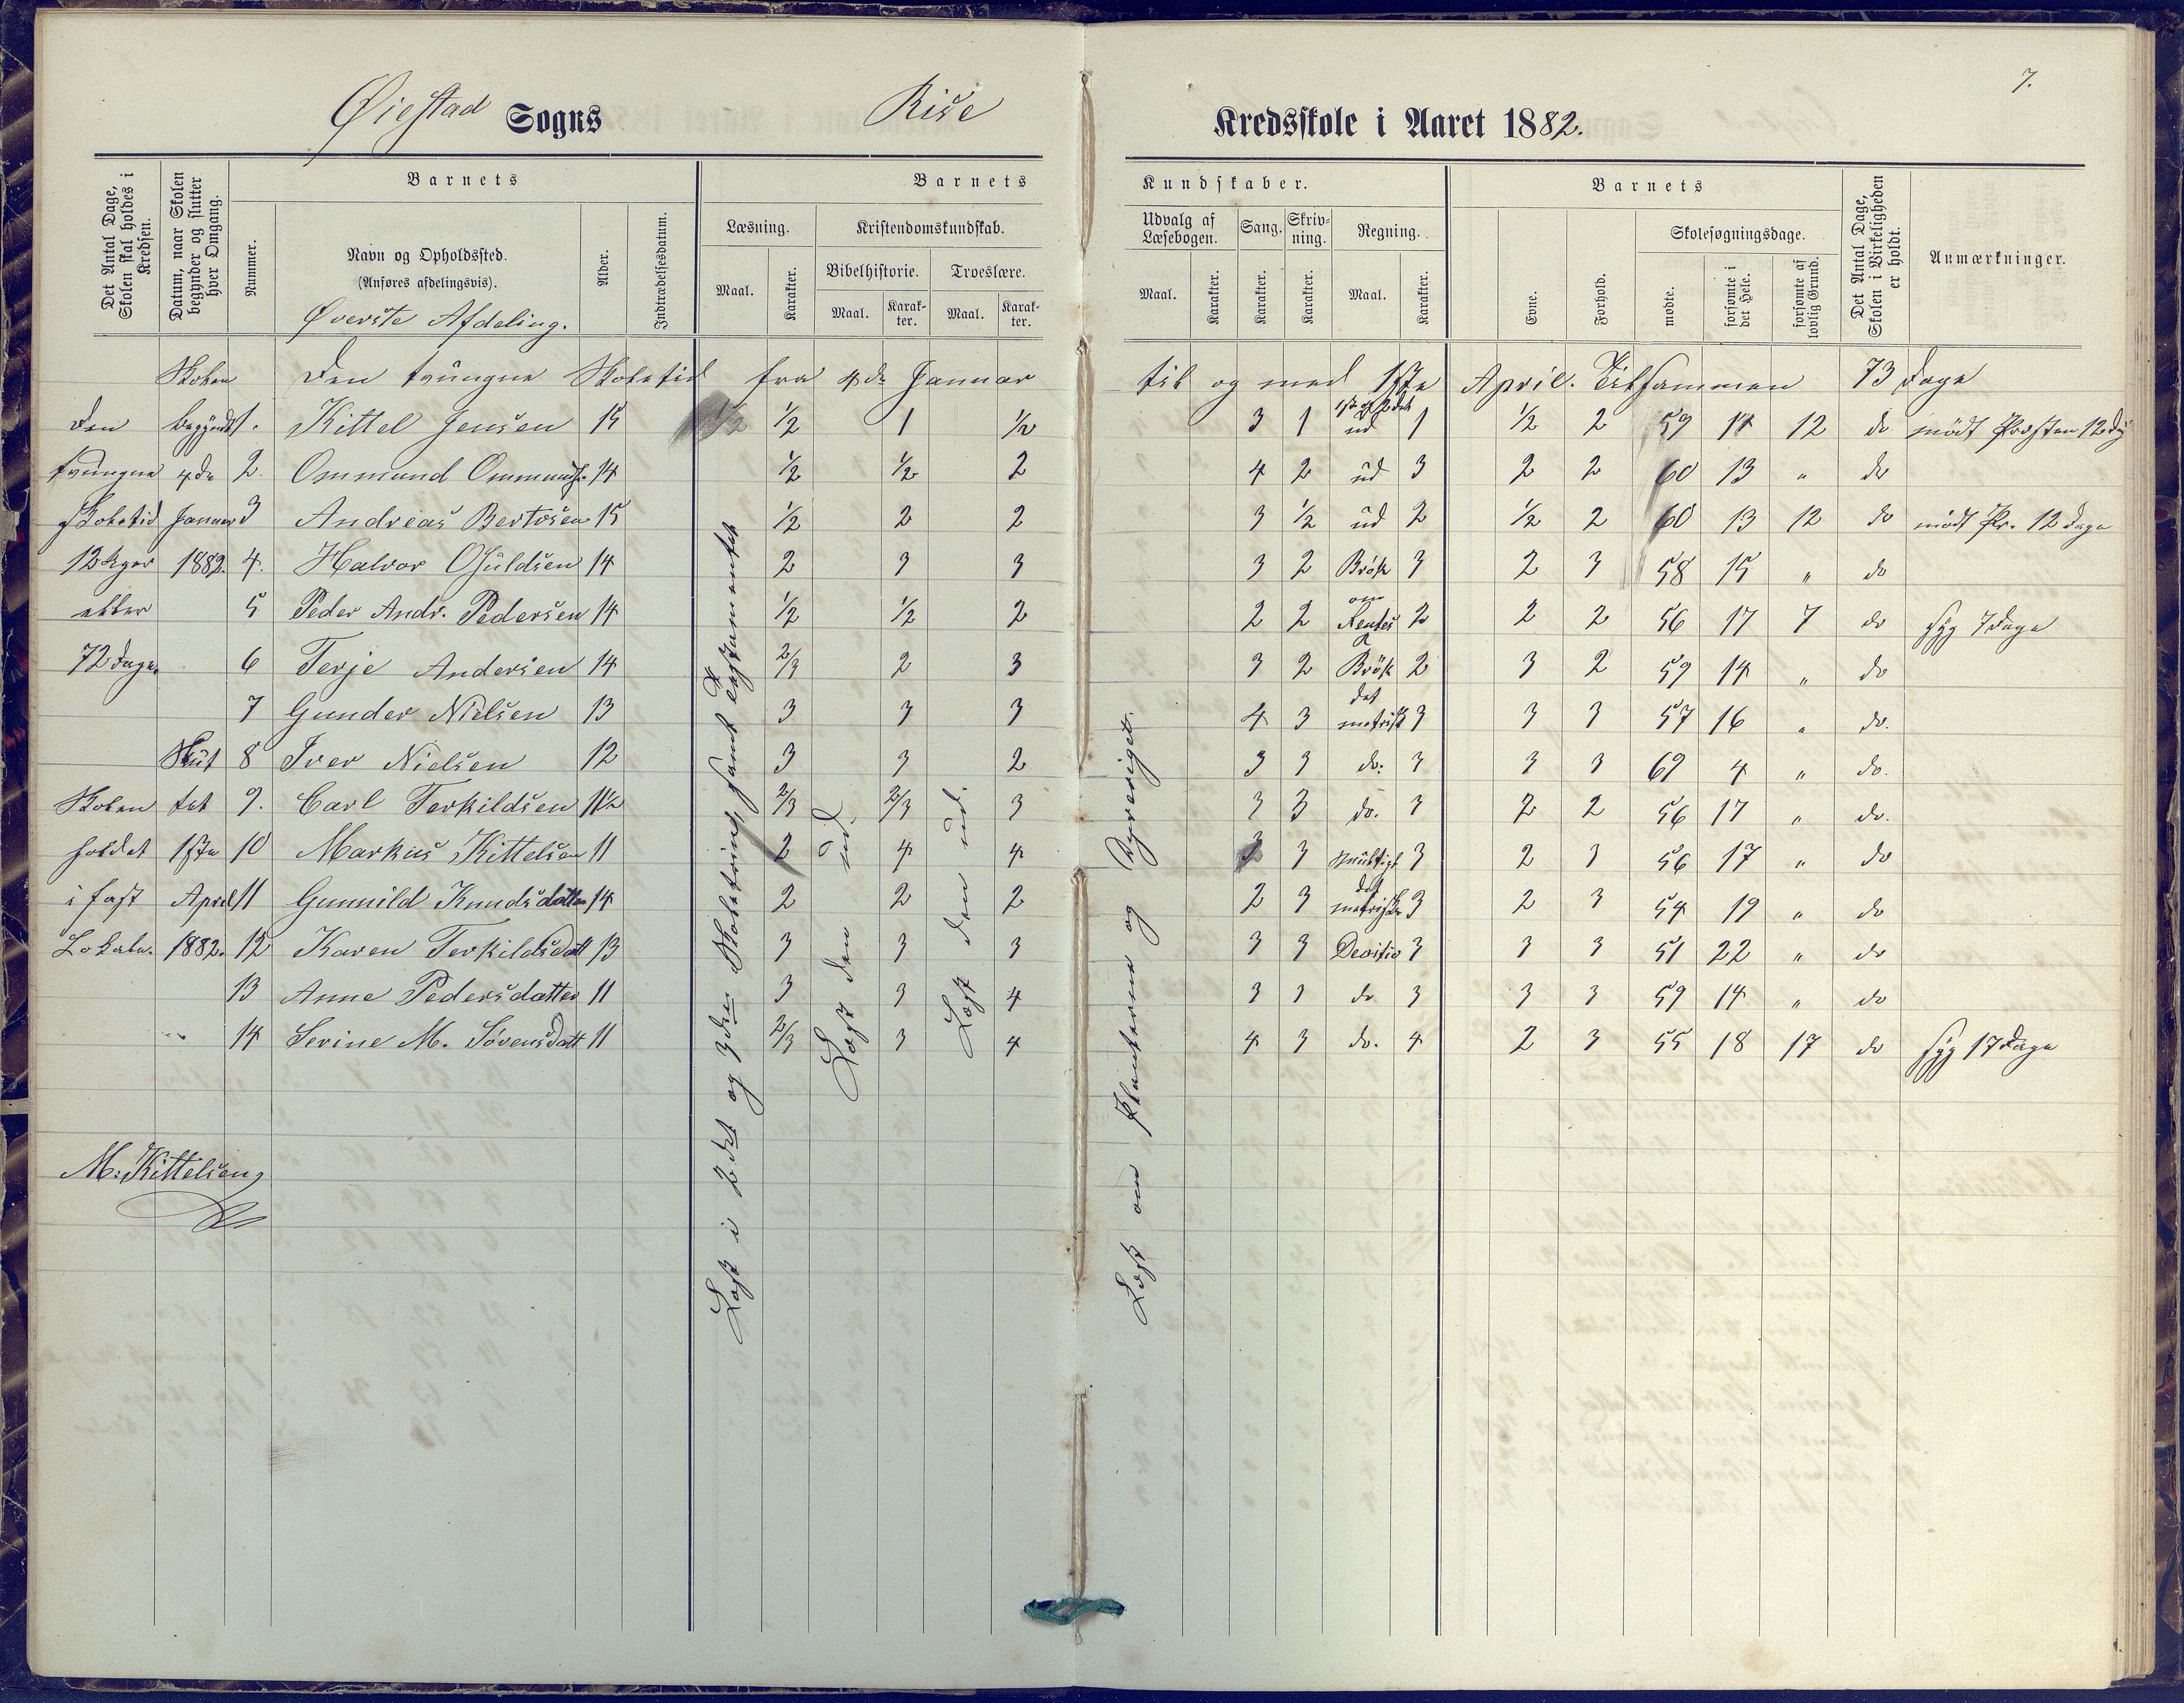 7.
Øiestad Sogns Rise Kredsskole i Aaret 1882.
Det Antal Dage, Skolen skal holdes i Kredsen.
Datum, naar Skolen begynder og slutter hver Omgang.
Barnets
Nummer.
Navn og Opholdssted.
(Anføres afdelingsvis).
Øverste Afdeling.
Alder.
Indtrædelsesdatum.
Barnets Kundskaber.
Læsning.
Maal.
Karakter.
Kristendomskundskab.
Bibelhistorie.
Maal.
Karakter.
Troeslære.
Maal.
Karakter.
Udvalg af Læsebogen.
Maal.
Karakter.
Sang.
Karakter.
Skrivning.
Karakter.
Regning.
Maal.
Karakter.
Barnets
Evne.
Forhold.
Skolesøgningsdage.
mødte.
forsømte i det Hele.
forsømte af lovlig Grund.
Det Antal Dage, Skolen i Virkeligheden er holdt.
Anmærkninger.
Skolen Den tvungne Skoletid fra 4de Januar til og med 1ste April. Tilsammen 73 Dage
Den begyndt 1. Kittel Jensen 15 1/2 1/2 1 1/2 3 1 ud 1 1/2 2 59 14 12 do mødt Præsten 12 Dg
tvungne 4de 2. Ommund Ommunds. 14 1/2 1/2 2 4 2 ud 3 2 2 60 13 " do
Skoletid Januar 3 Andreas Bertosen 15 1/2 2 2 3 1/2 ud 2 1/2 2 60 13 12 do mødt Pr. 12 Dage
12 Uger 1882. 4. Halvor Osuldsen 14 2 3 3 3 2 Brøk 3 2 3 58 15 " do
eller 5 Peder Andr. Pedersen 14 1/2 1/2 2 2 2 Rentes 2 2 2 56 17 7 do syg 7 Dage
72 Dage. 6 Terje Andersen 14 2/3 2 3 3 2 Brøk 2 3 2 59 14 " do
7 Gunder Nielsen 13 3 3 3 4 3 det metrisk 3 3 3 57 16 " do.
Slut 8 Iver Nielsen 12 3 3 2 3 3 do: 3 3 3 69 4 " do.
Skolen tet 9. Carl Terkildsen 11 1/2 2/3 2/3 3 3 3 do. 3 2 2 56 17 " do.
holdet 1ste 10 Markus Kittelsen 11 2 4 4 3 3 Multipl 3 2 3 56 17 " do
i fast April 11 Gunnild Knudsdatter 14 2 2 2 2 3 det metriske 3 2 3 54 19 " do
Lokale. 1882. 12 Karen Terkildsdatt 13 3 3 3 3 3 Devisio 3 3 3 51 22 " do
13 Anne Pedersdatter 11 3 3 4 3 3 do 3 3 3 59 14 " do
14 Serine M. Sørensdatt 11 2/3 3 4 4 3 do. 4 2 3 55 18 17 do syg 17 Dage
M. Kittelsen
Læst i 2det og 3die Skoletrin, samt Testamentet
Læst den ud.
Læst den ud.
Læst om Planterne og Dyreriget.